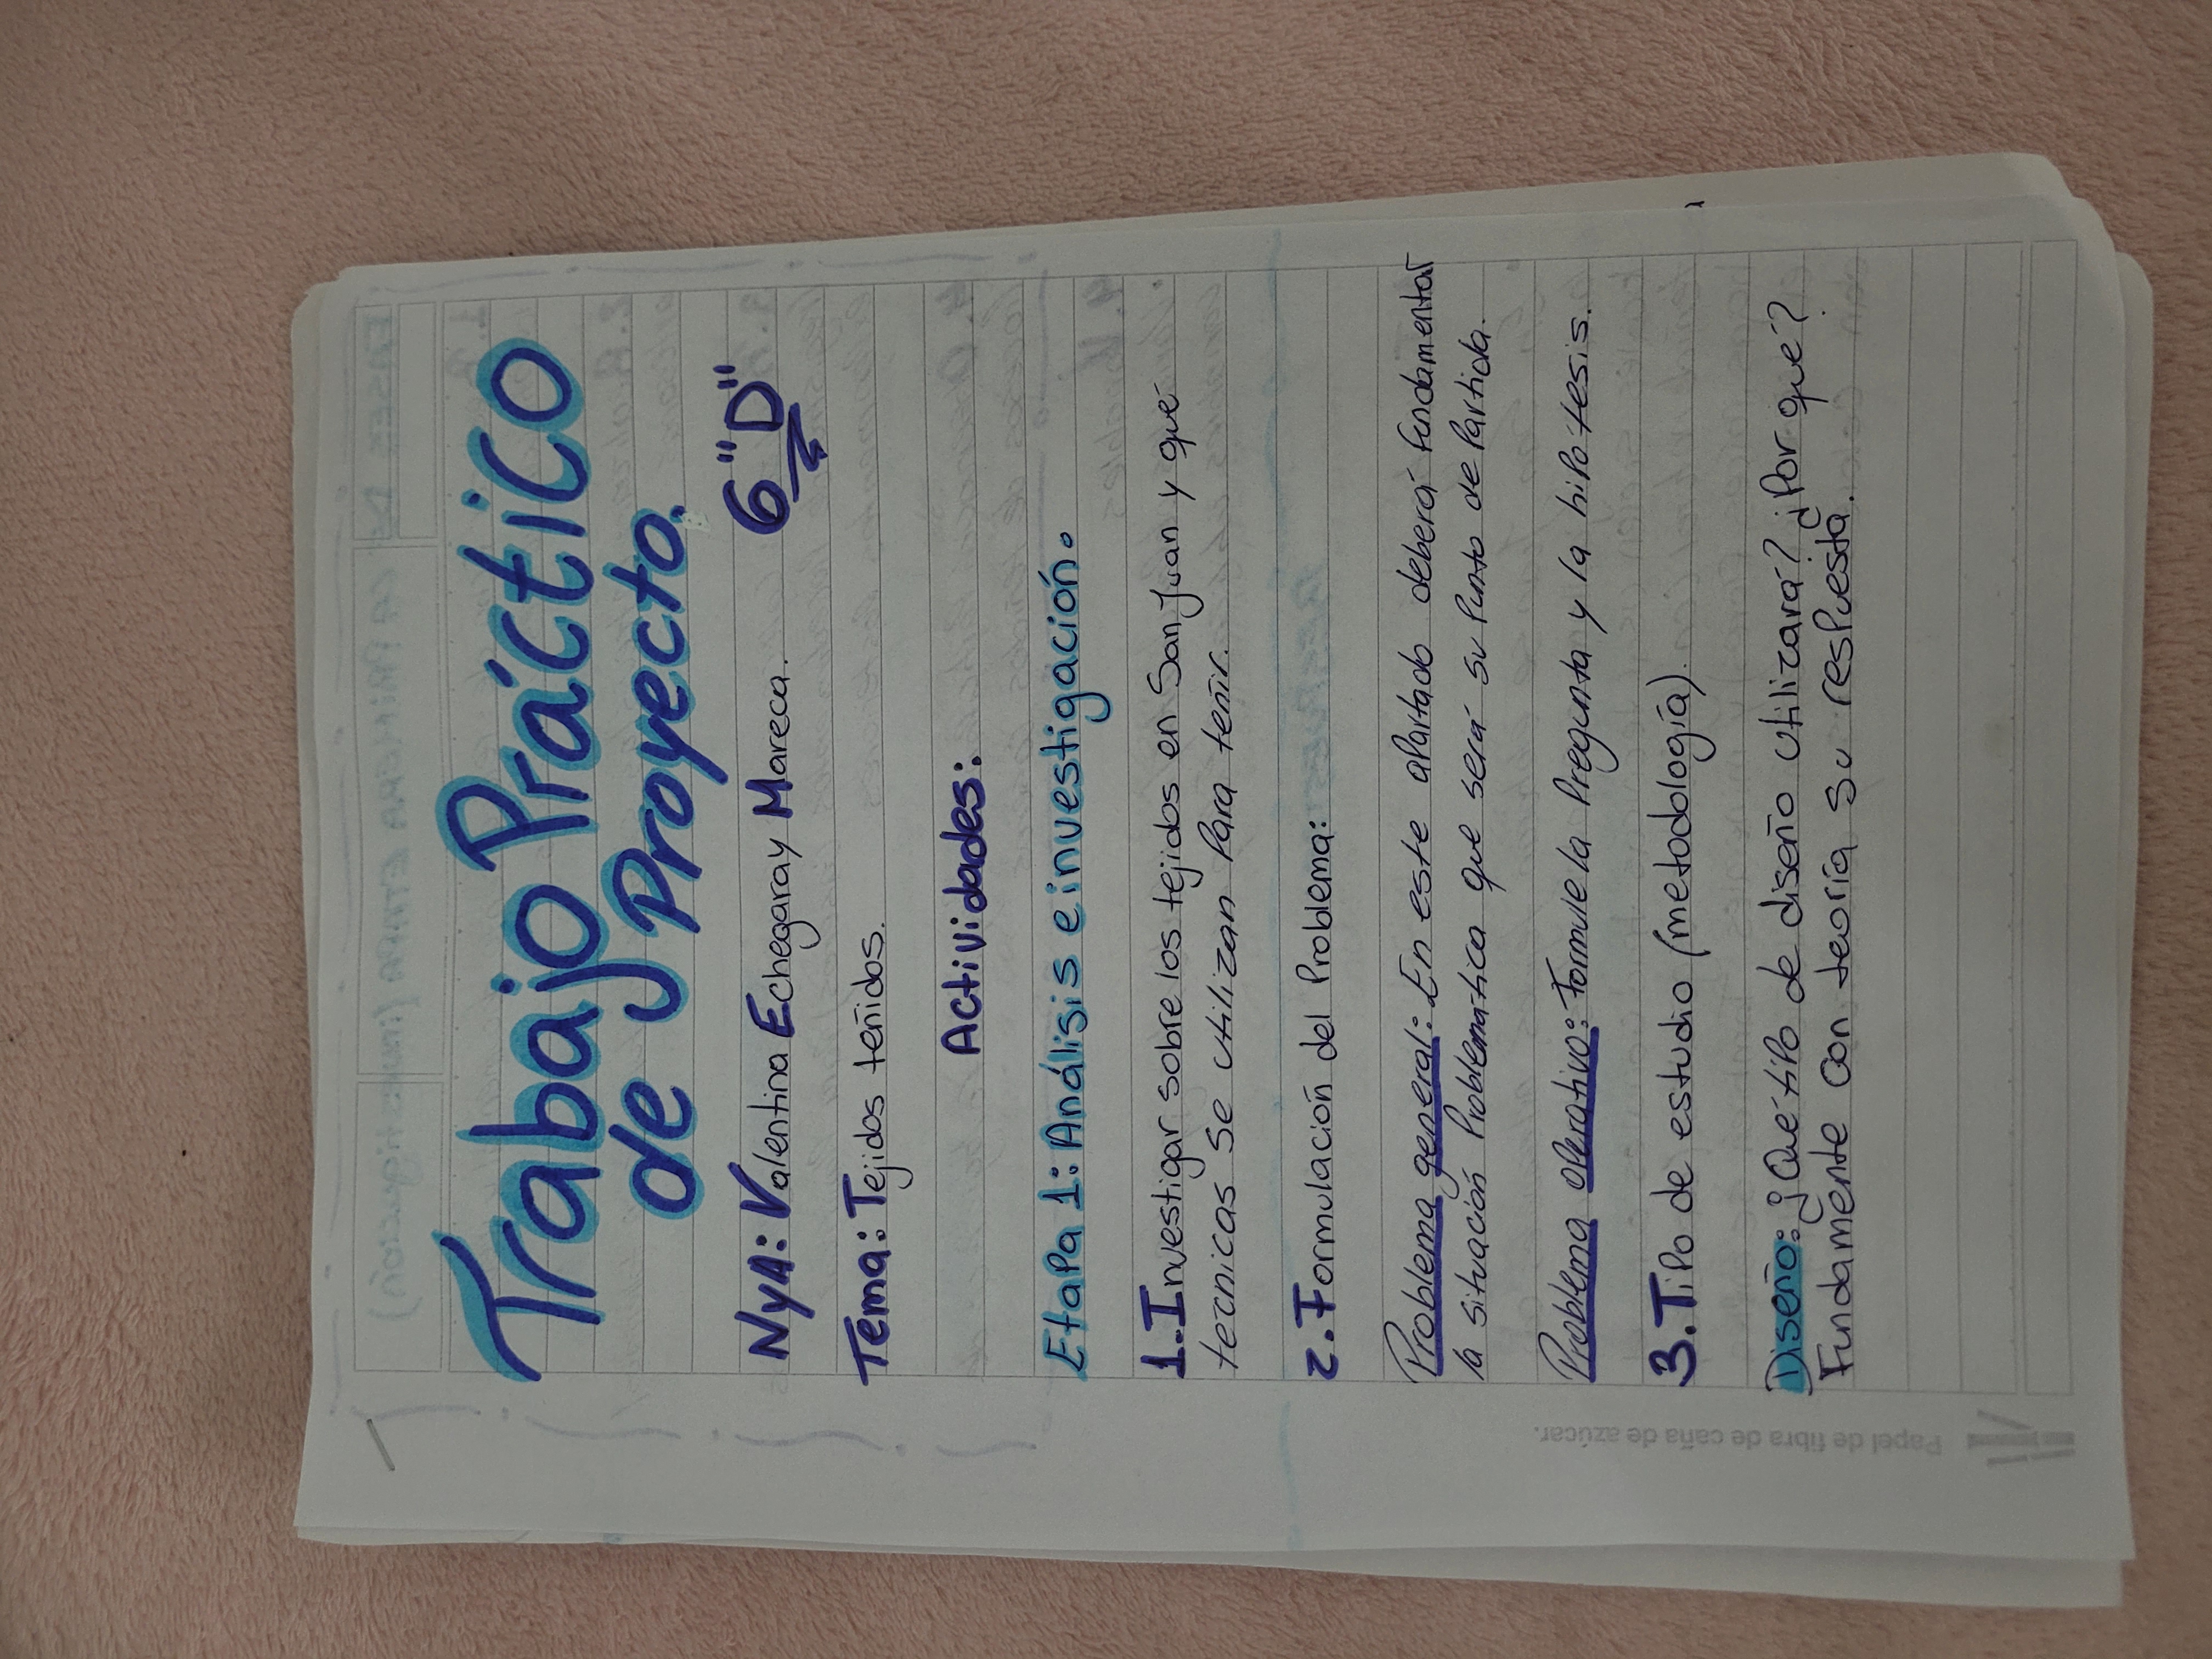 Trabajo Práctico
de Proyecto.
NyA: Valentina Echegaray Mareca. 6"D"
Tema: Tejidos teñidos.
Actividades:
Etapa 1: Análisis e investigación.
1. Investigar sobre los tejidos en San Juan y qué
tecnicas se utilizan para teñir.
2. Formulación del Problema:
Problema general: En este apartado deberá fundamentar
la situación Problematica que será su Punto de Partida.
Problema operativo: Formule la Pregunta y la hipótesis.
3. Tipo de estudio (metodología).
Diseño: ¿Qué tipo de diseño utilizará? ¿Por qué?
Fundamente con teoría su respuesta.
Papel de fibra de caña de azúcar.